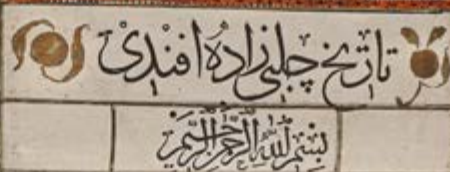 تاريخ چلبی زاده افندی
بسم الله الرحمن الرحيم